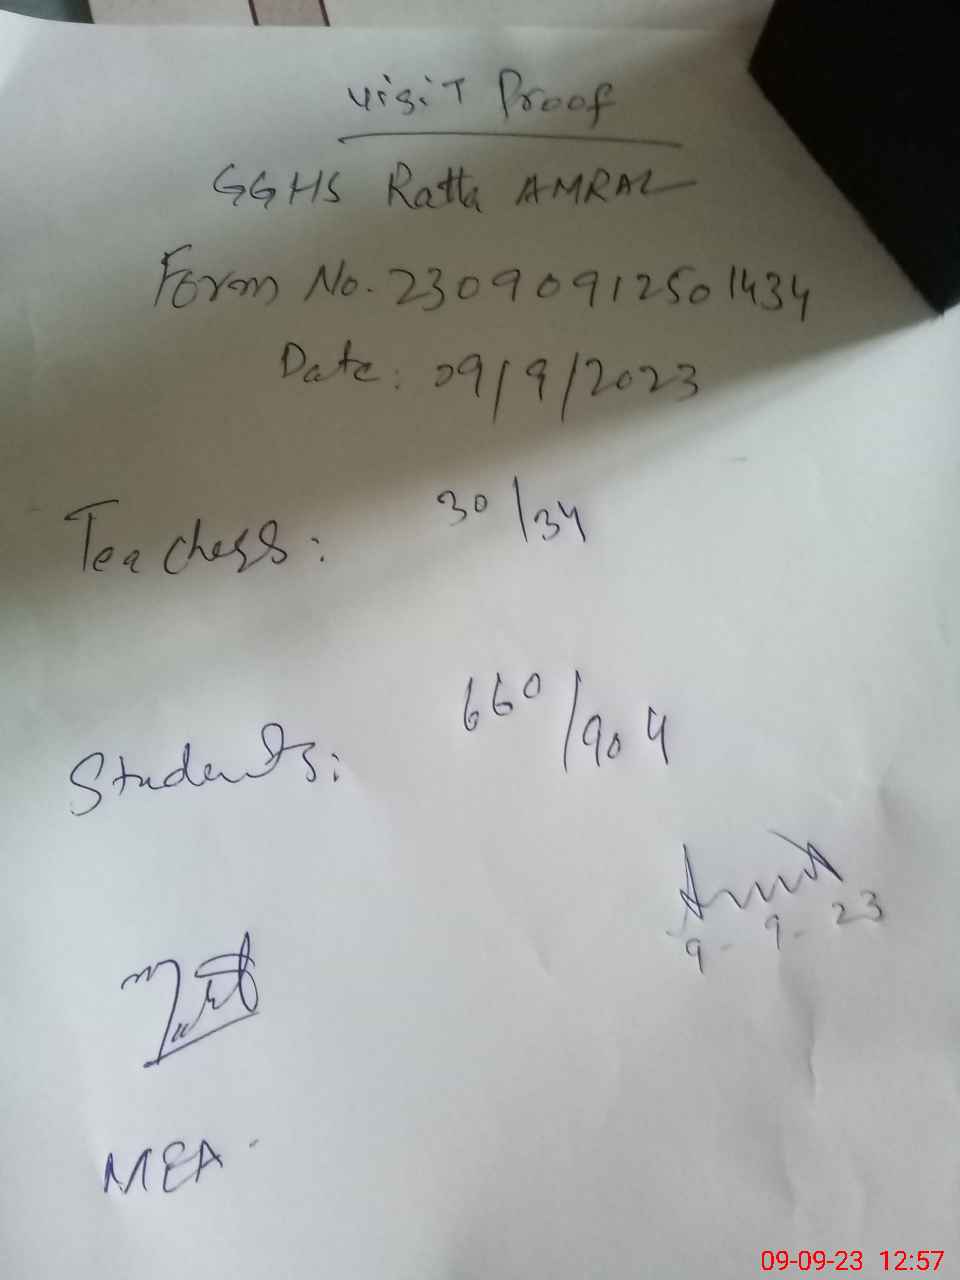 Visit Proof
GGHS Ratta AMRAL
Form No. 23090912501434
Date: 09/9/2023
Teachers: 30/34
Students: 660/904
9-9-23
MEA
09-09-23 12:57